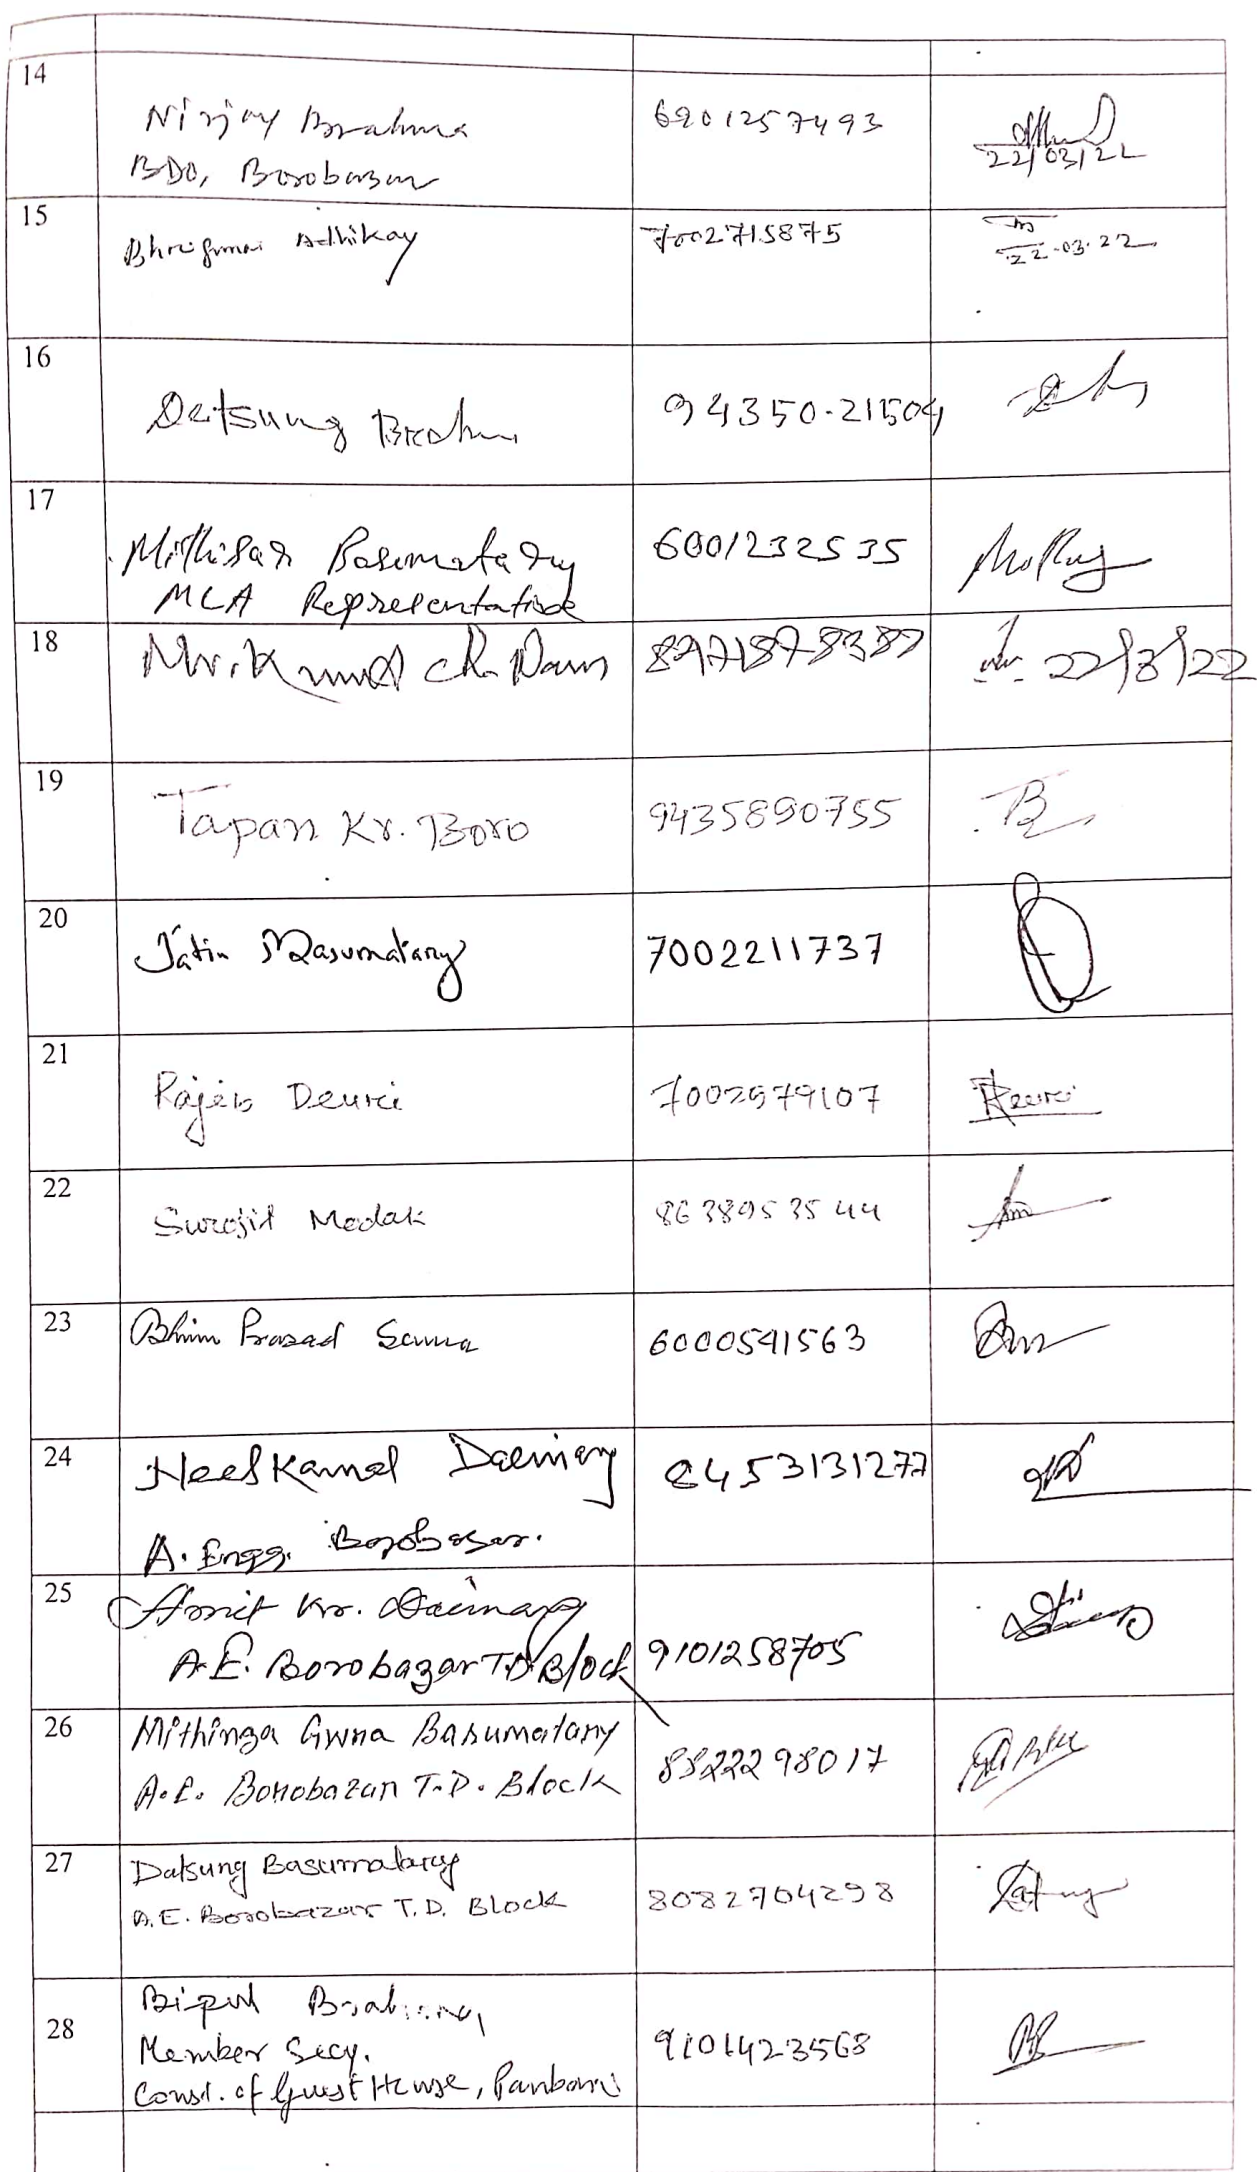 14
Nirjay Brahma 6901257493
BDO, Borobazar 22/03/22
15
Adhikary 7002715875
22.03.22
16
Datsung Brahma 94350-21504
17
Mithisar Basumatary 6001232535
MLA Representative
18
Mr. Kumud ch. Das 22/3/22
19
Tapan Kr. Boro 9435890755
20
Jatin Basumatary 7002211737
21
Rajib Deuri 7002979107
22
Surojit Modak 8638953544
23
Bhim Prasad Sarma 6000591563
24
Neel Kamal Daimary 8453131277
A. Engg. Borobazar.
25
Amit Kr. Daimary
A.E. Borobazar T.D. Block 9101258705
26
Mithinga Gwna Basumatary
A.E. Borobazar T.D. Block 8822298017
27
Datsung Basumatary
A.E. Borobazar T.D. Block 8082704298
28
Bipul Brahma
Member Secy. 9101423568
Const. of Guest House, Panbari